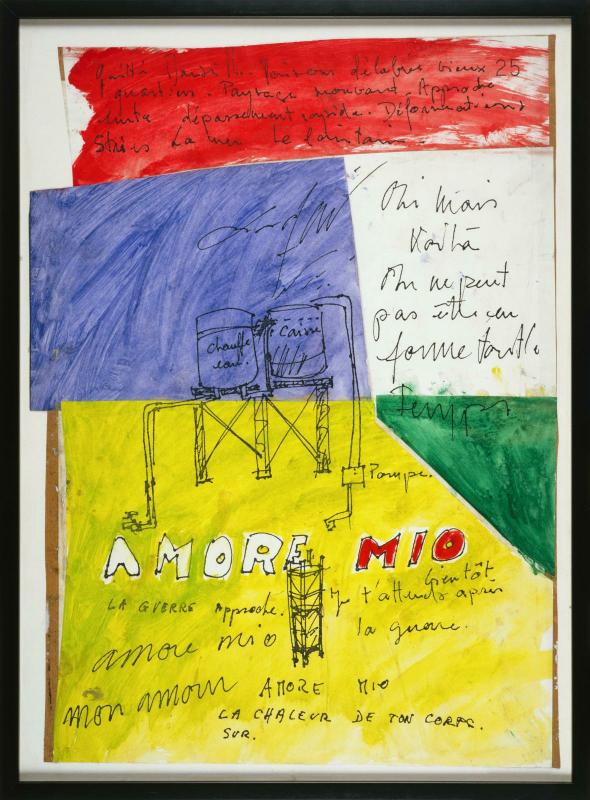 quitté Marseille. Maisons délabrés vieux 25
quartiers. Paysage mouvant. Approche
lente dépassement rapide. Déformations
Stries La mer Le lointain
Oui mais
Voilà
On ne peut
pas être en
forme tout le
Temps
chauffe
eau.
Pompe.
AMORE MIO
bientôt
LA GUERRE Approche.
Je t'attends après
la guerre.
amore mio
mon amour
AMORE MIO
LA CHALEUR DE TON CORPS.
SUR.